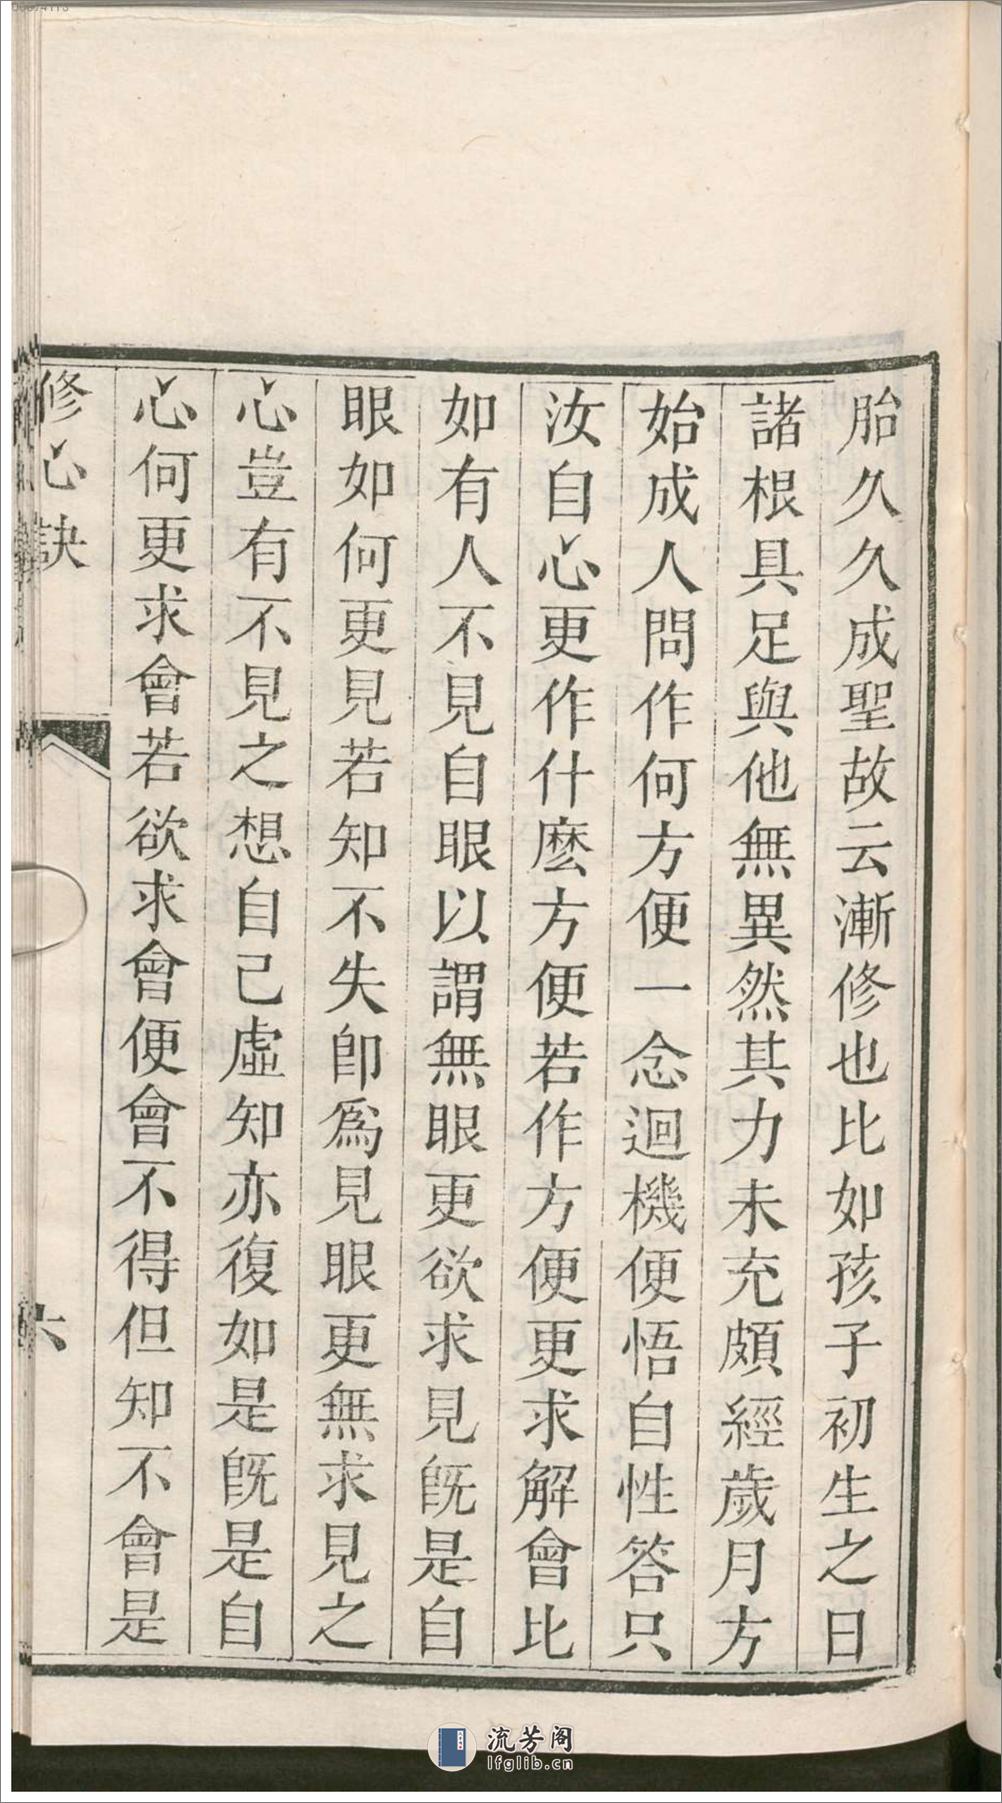 胎久久成聖故云漸修也比如孩子初生之日
諸根具足與他無異然其力未充頗經歲月方
始成人問作何方便一念迴機便悟自性答只
汝自心更作什麽方便若作方便更求解會比
如有人不見自眼以謂無眼更欲求見旣是自
眼如何更見若知不失卽爲見眼更無求見之
心豈有不見之想自己虛知亦復如是旣是自
心何更求會若欲求會便會不得但知不會是
修心訣
六
流芳阁
lfglib.cn